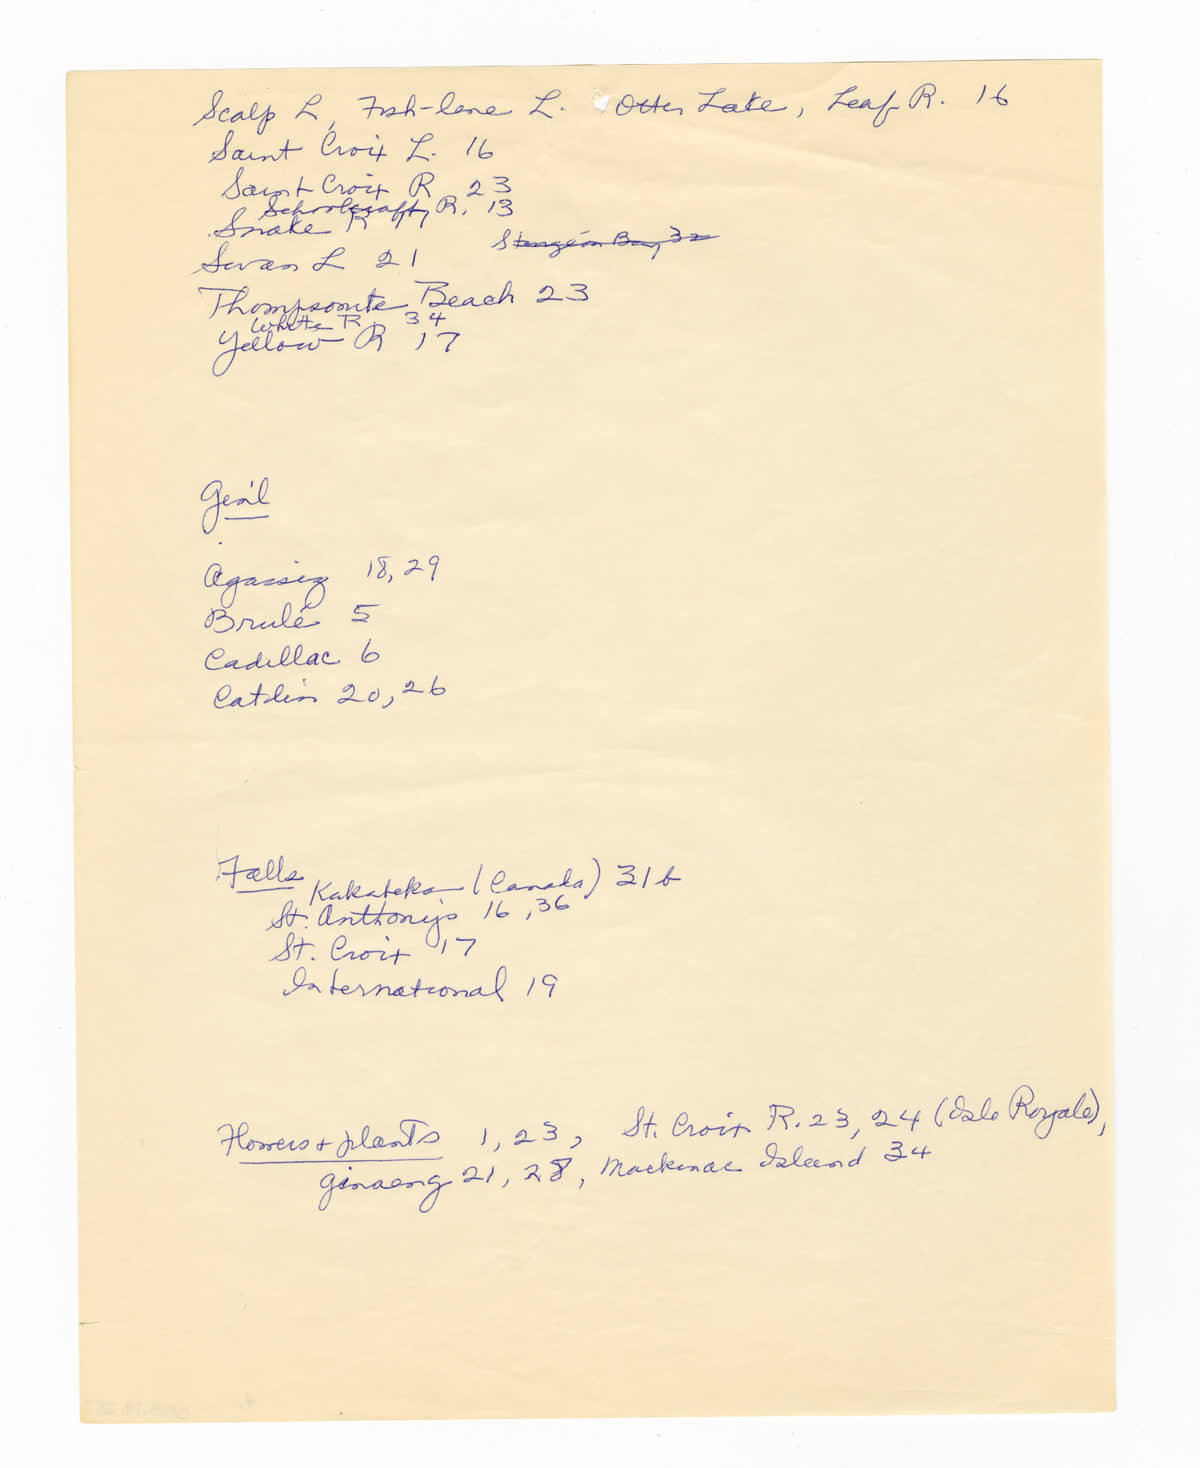 Scalp L, Fish-line L. Otter Lake, Leaf R. 16
Saint Croix L. 16
Saint Croix R 23
Schoolcraft R. 13
Snake R 17
Sturgeon Bay 32
Swan L 21
Thompsonite Beach 23
White R 34
Yellow R 17
Gen'l
Agassiz 18, 29
Brulé 5
Cadillac 6
Catlin 20, 26
Falls
Kakabeka (Canada) 316
St. Anthony's 16, 36
St. Croix 17
International 19
Flowers + plants 1, 23, St. Croix R. 23, 24 (Isle Royale),
ginseng 21, 28, Mackinac Island 34